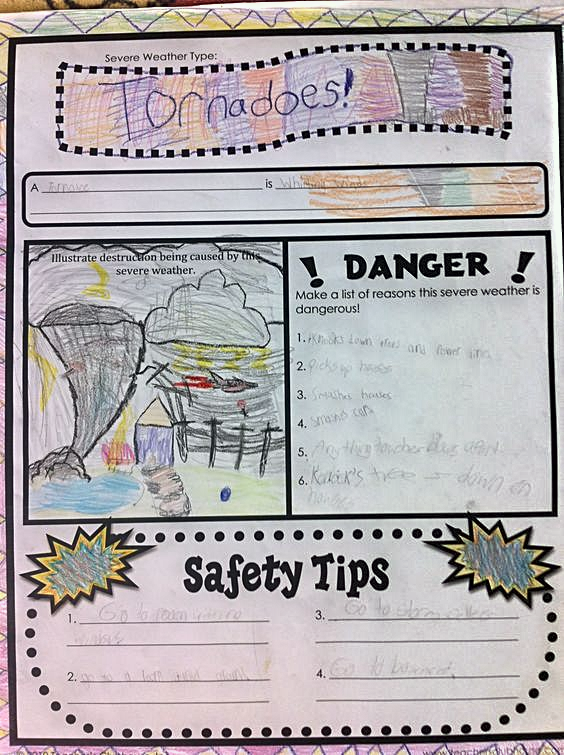 Severe Weather Type:
Tornadoes!
A is Whirling winds
Illustrate destruction being caused by this
severe weather.
! DANGER !
Make a list of reasons this severe weather is
dangerous!
1. Knocks down trees and Power line
2. Picks up houses
3. Smashes houses
4. smashs cars
5. Anything
6. Knock's tree down on
houses
Safety Tips
1. Go to room with no
windows
2. go to a
3. Go to storm
4. Go to basement.